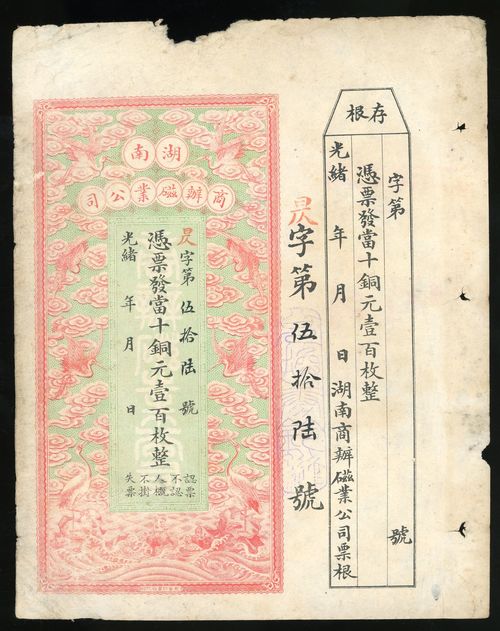 存根
字第 號
憑票發當十銅元壹百枚整
光緒 年 月 日 湖南商辦磁業公司票根
字第伍拾陸號
湖南
商辦磁業公司
字第伍拾陸號
憑票發當十銅元壹百枚整
光緒 年 月 日
認票不認人
失票不掛